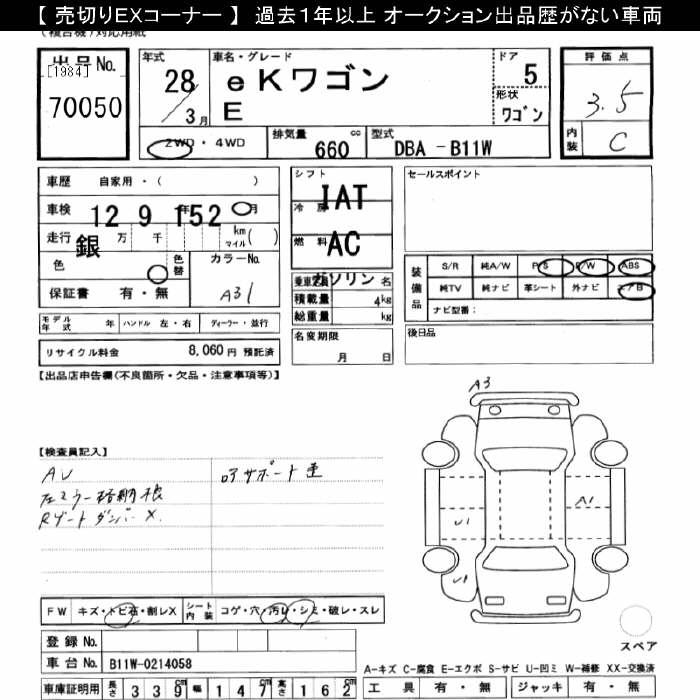 【 売切りEXコーナー 】 過去１年以上 オークション出品歴がない車両
(複合機)対応用紙
出品No.
[1984]
70050
年式
28
3月
車名・グレード
eKワゴン
E
ドア
5
形状
ワゴン
評価点
3.5
内装
C
2WD・4WD
排気量 660 cc
型式 DBA - B11W
車歴 自家用・( )
車検 12 9 152 年 月
走行 銀 万 千 km マイル( )
色 色替 カラーNo. A31
保証書 有・無
シフト IAT
冷房 AC
燃料 ガソリン
乗車定員 名
積載量 4kg
総重量 kg
名変期限
月 日
セールスポイント
装備品 S/R 純A/W P/S P/W ABS
純TV 純ナビ 革シート 外ナビ エアB
ナビ型番:
後日品
モデル年式 年 ハンドル 左・右 ディーラー・並行
リサイクル料金 8,060円 預託済
【出品店申告欄(不良箇所・欠品・注意事項等)】
【検査員記入】
AU
左ミラー格納不良
Rゲートダンパー X.
コアサポート 歪
A3
U1
A1
U1
FW キズ・トビ石・割レX シート内装 コゲ・穴・汚レ・シミ・破レ・スレ
登録No.
車台No. B11W-0214058
車庫証明用 長さ 339cm 幅 147cm 高さ 162cm
スペア
A-キズ C-腐食 E-エクボ S-サビ U-凹ミ W-補修 XX-交換済
工具 有・無 ジャッキ 有・無